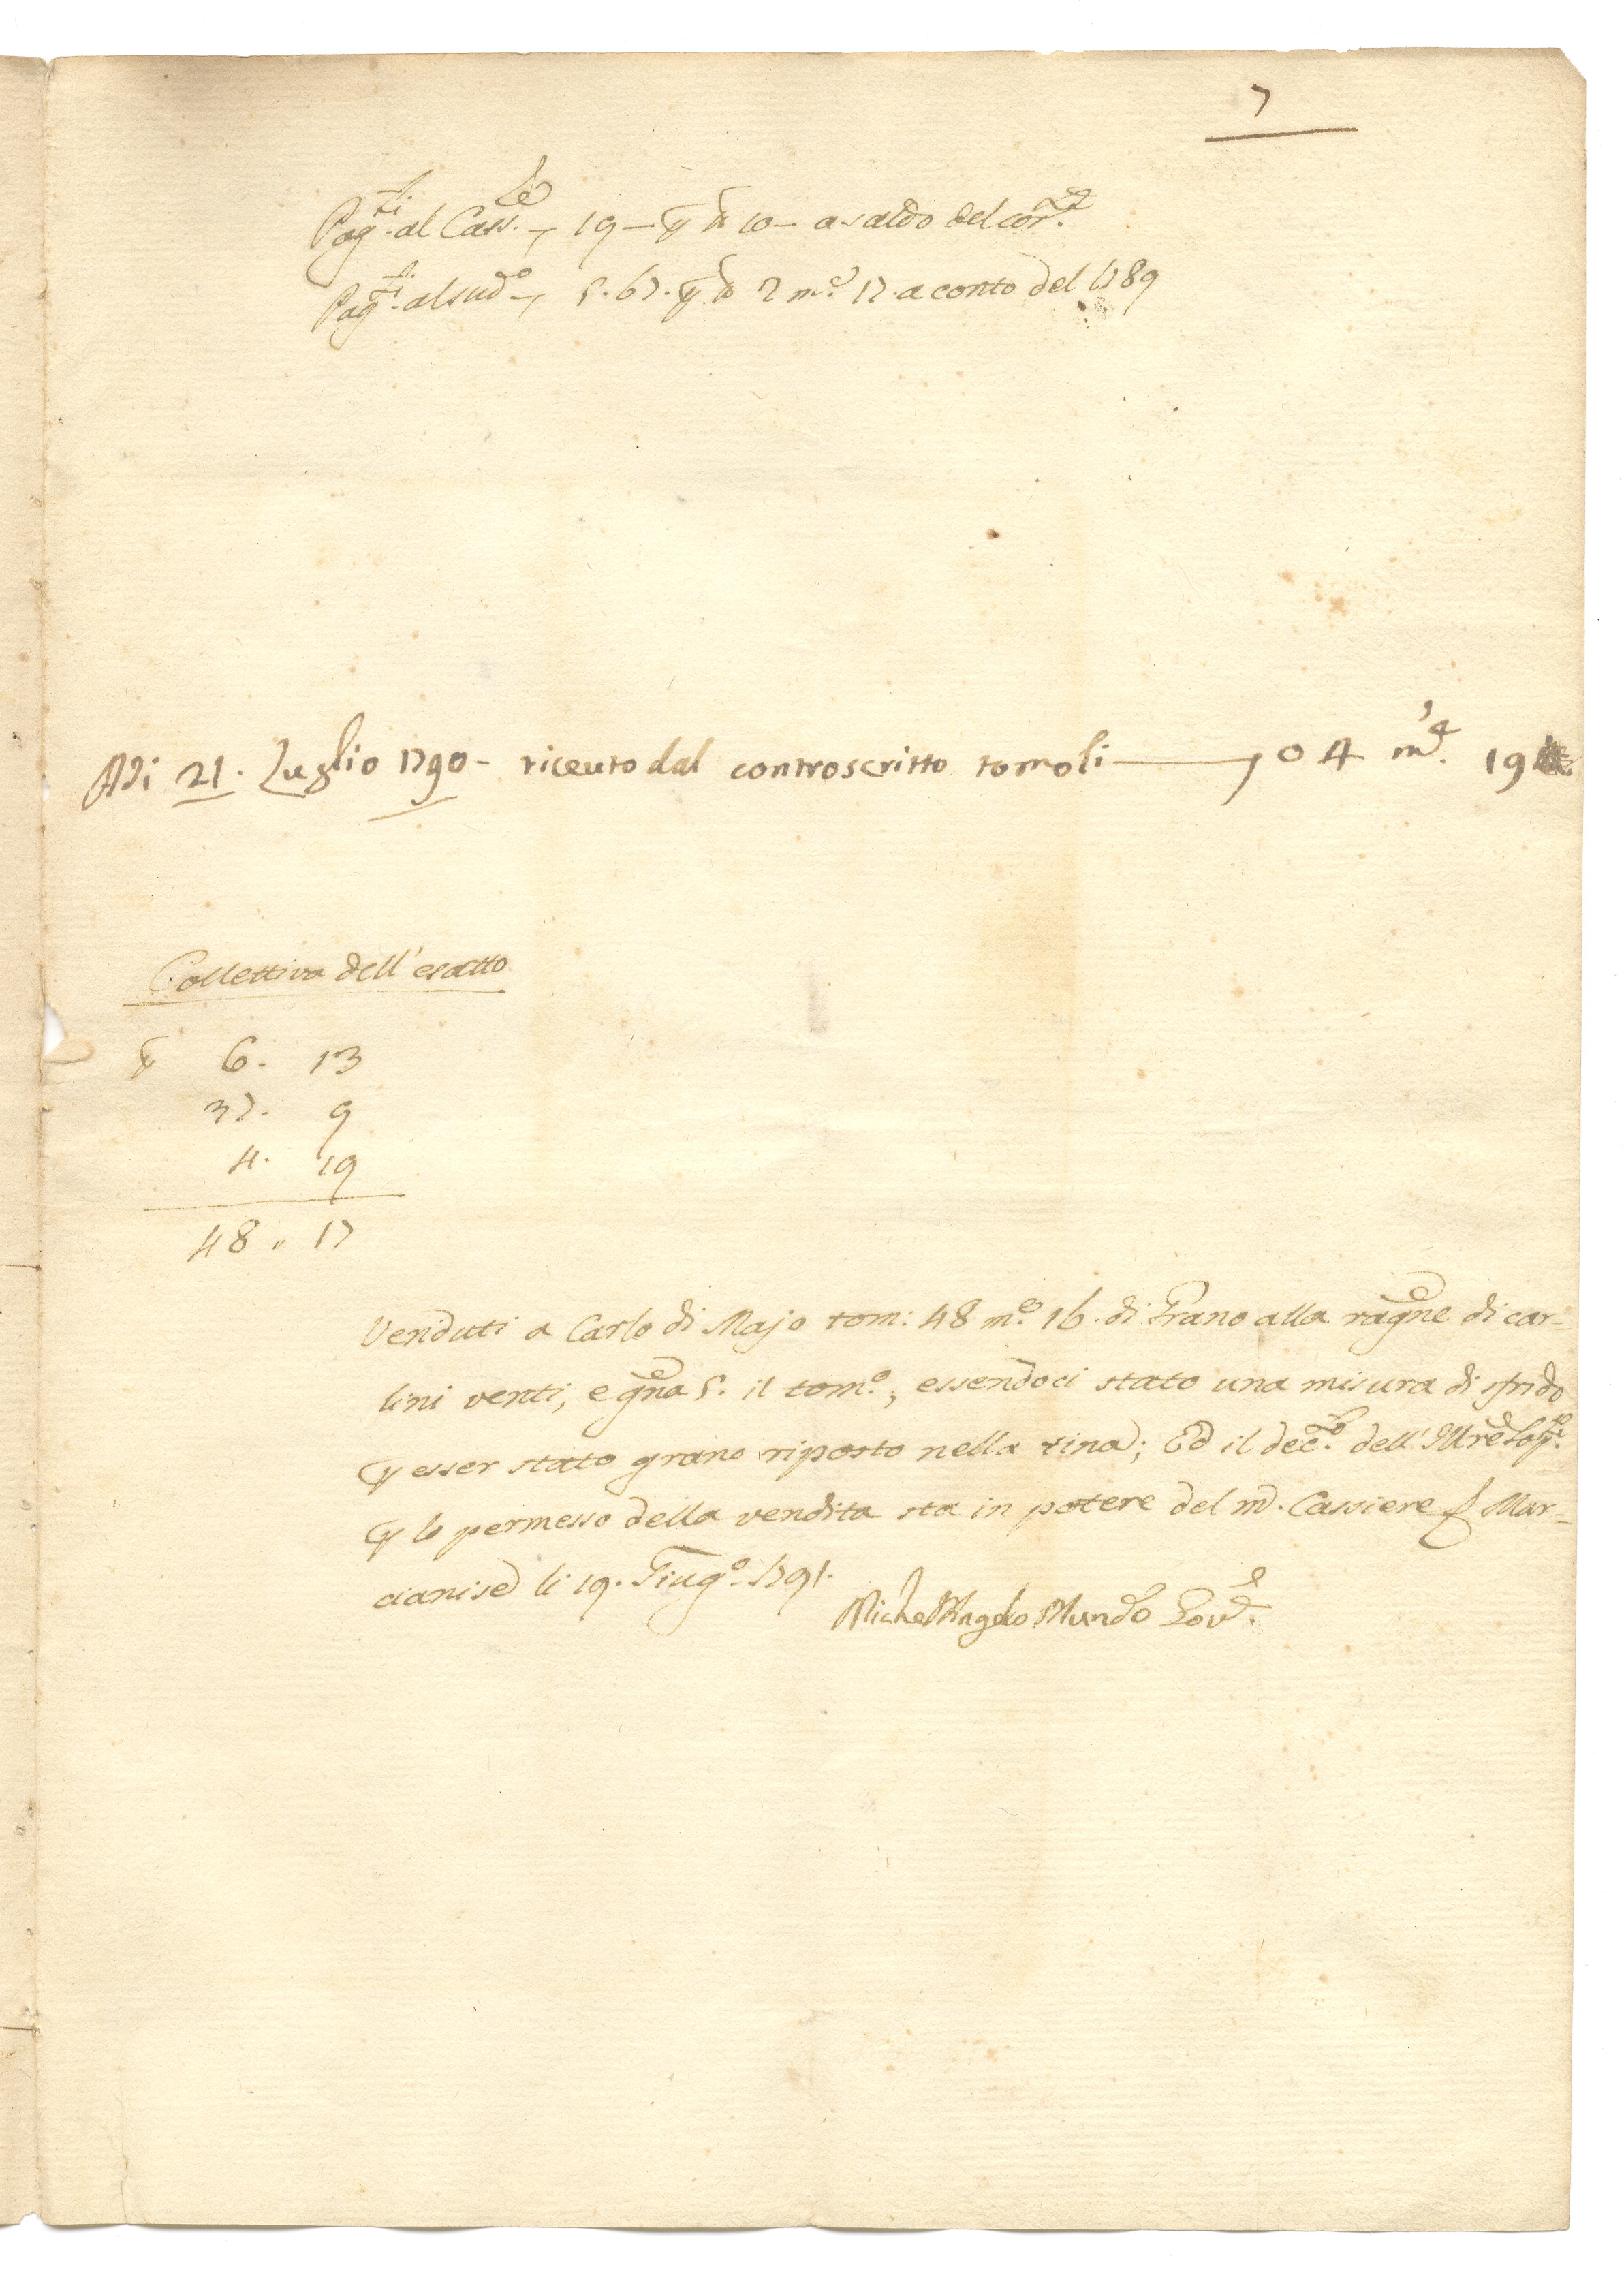 7
Pag.ti al Cass.re 19 - p t.a 10 - a saldo del cor.te
Pag.ti al sud.o 5.67. p t.a 2 m.e 17. a conto del 1789
Adi 21. Luglio 1790 - riceuto dal controscritto tomoli 04 m.e 19
Collettiva dell'esatto
6. 13
37. 9
4. 19
48 " 17
Venduti a Carlo di Majo tom: 48 m.e 16. di Grano alla rag.ne di car=
lini venti, e g.na 5. il tom.o, essendoci stato una misura di sfrido
p esser stato grano riposto nella tina; Ed il dec.to dell'
p lo permesso della vendita sta in potere del m.co Cassiere Mar=
cianise li 19. Giug.o 1791.
Michel'Angelo Mundo Gov.re